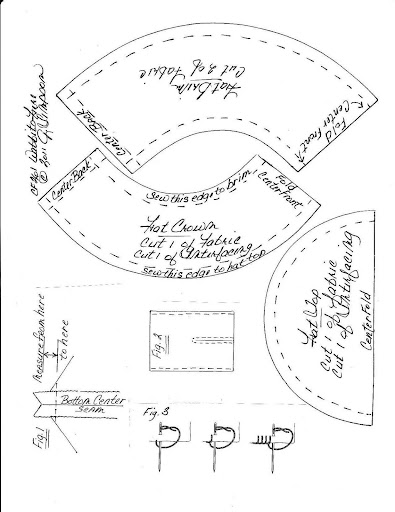 Hat Brim
Cut 2 of Fabric
Center Back
Fold
Center Front
© 2011 G. Simpson
Center Back
Sew this edge to brim
Fold
Center Front
Hat Crown
Cut 1 of Fabric
Cut 1 of Interfacing
Sew this edge to hat top
Hat Top
Cut 1 of Fabric
Cut 1 of Interfacing
Center Fold
Measure from here
to here
Bottom Center
Seam
Fig. 1
Fig. 2
Fig. 3